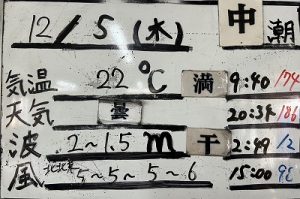 12/5(木) 中潮
気温 22℃ 満 9:40 174
天気 曇 20:34 186
波 2~1.5m 干 2:49 12
風 北北東 5~5~5~6 15:00 93